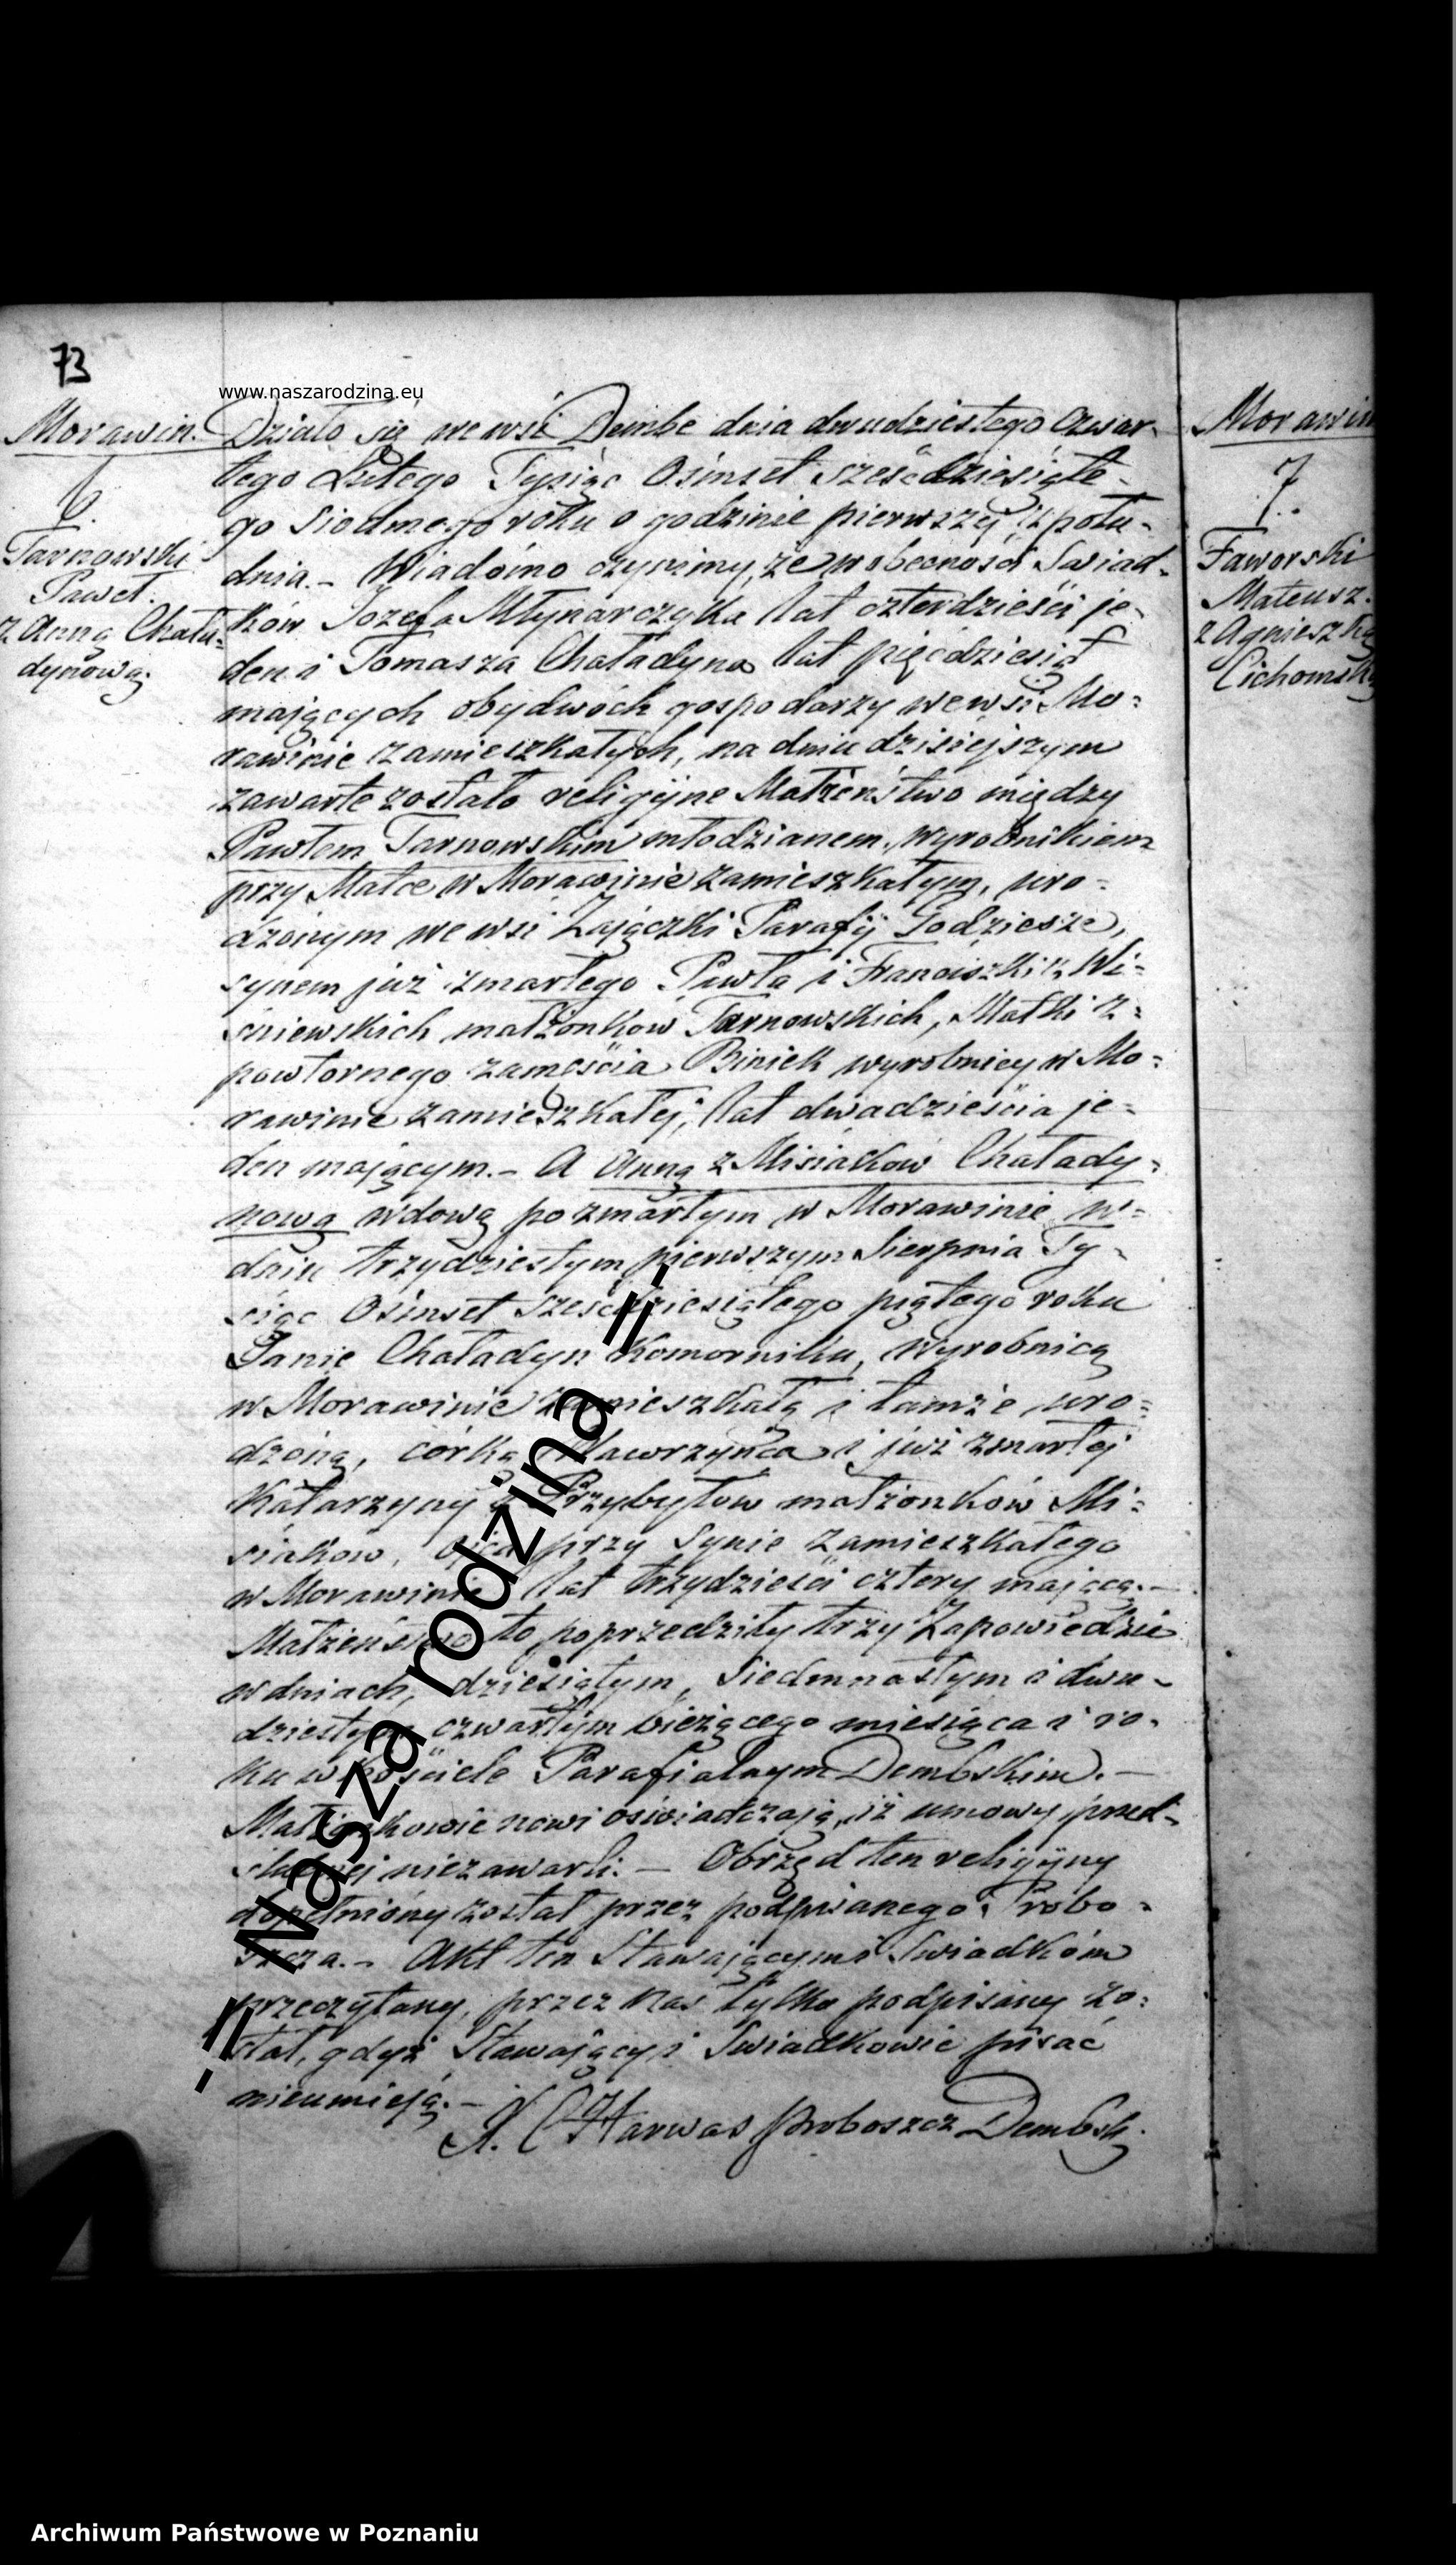 73
www.naszarodzina.eu
Morawin.
6.
Tarnowski
Paweł.
z Anną Chała-
dynową.
Działo się we wsi Dembe dnia dwudziestego czwar-
tego Lutego Tysiąc Ośmset sześćdziesiąte-
go siodmego roku o godzinie pierwszej z połu-
dnia. – Wiadomo czynimy, że w obecności Swiad-
ków Józefa Młynarczyka lat czterdzieści je-
den i Tomasza Chaładyna lat pięćdziesiąt
mających obydwóch gospodarzy we wsi Mo-
rawinie zamieszkałych, na dniu dzisiejszym
zawarte zostało religijne Małżeństwo między
Pawłem Tarnowskim młodzianem, wyrobnikiem
przy Matce w Morawinie zamieszkałym, uro-
dzonym we wsi Zajączki Parafij Godziesze,
synem już zmarłego Pawła i Franciszki z Wi-
śniewskich małżonków Tarnowskich, Matki z-
powtornego zamęścia Biniek wyrobnicy w Mo-
rawinie zamieszkałej, lat dwadzieścia je-
den mającym. – A Anną z Misiaków Chałady-
nową wdową po zmarłym w Morawinie w-
dniu trzydziestym pierwszym Sierpnia Ty-
siąc Ośmset sześćdziesiątego piątego roku
Janie Chaładyn Komorniku, wyrobnicą
w Morawinie zamieszkałą i tamże uro-
dzoną, córką Wawrzyńca i już zmarłej
Katarzyny z Przybyłów małżonków Mi-
siaków, ojca przy Synie zamieszkałego
w Morawinie lat trzydzieści cztery mającą. –
Małżeństwo to poprzedziły trzy Zapowiedzie
w dniach, dziesiątym, siedmnastym i dwu-
dziestym czwartym bieżącego miesiąca i ro-
ku w kościele Parafialnym Dembskim. –
Małżonkowie nowi oświadczają, iż umowy przed-
ślubnej niezawarli. – Obrzęd ten religijny
dopełniony został przez podpisanego Probo-
szcza. – Akt ten Stawającym i Swiadkom
przeczytany, przez Nas tylko podpisany zo-
stał, gdyż Stawający i Swiadkowie pisać
nieumieją. –
Harwas Proboszcz Dembsk.
Morawin
7.
Faworski
Mateusz.
z Agnieszką
Cichomską
-= Nasza rodzina =-
Archiwum Państwowe w Poznaniu